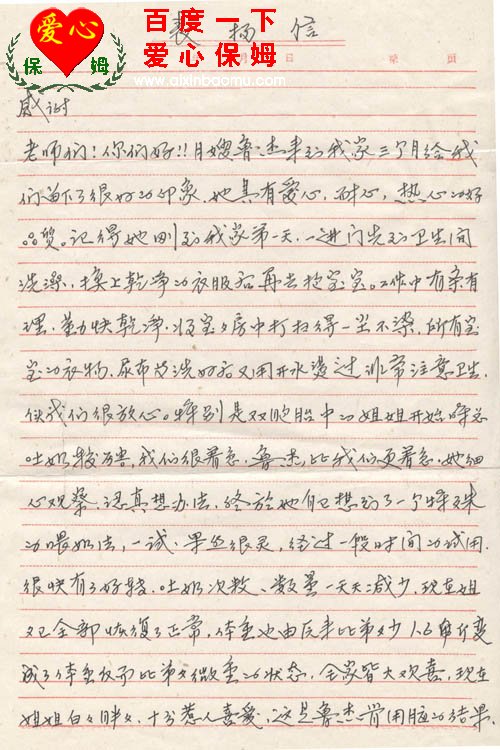 爱心
保姆
百度一下
爱心保姆
www.aixinbaomu.com
表扬信
月 日 第 页
感谢
老师们：你们好!!月嫂鲁杰来到我家三个月给我
们留下了很好的印象，她具有爱心，耐心，热心的好
品质。记得她刚到我家第一天，一进门先到卫生间
洗澡，换上乾净的衣服后再去抱宝宝。工作中有条有
理，勤快乾净，将宝宝房中打扫得一尘不染，所有宝
宝的衣物、尿布及洗好后又用开水烫过非常注意卫生
使我们很放心。特别是双胞胎中的姐姐开始时总
吐奶较历害，我们很着急，鲁杰比我们更着急，她细
心观察，认真想办法，终於她自己想到了一个特殊
的喂奶法，一试，果然很灵，经过一段时间的试用
很快有了好转，吐奶次数、数量一天天减少，现在姐
姐已全部恢復了正常，体重也由原来比弟弟少1.6市斤变
成了体重反而比弟弟微重的状态，全家皆大欢喜，现在
姐姐白白胖胖，十分惹人喜爱，这是鲁杰肯用脑的结果。